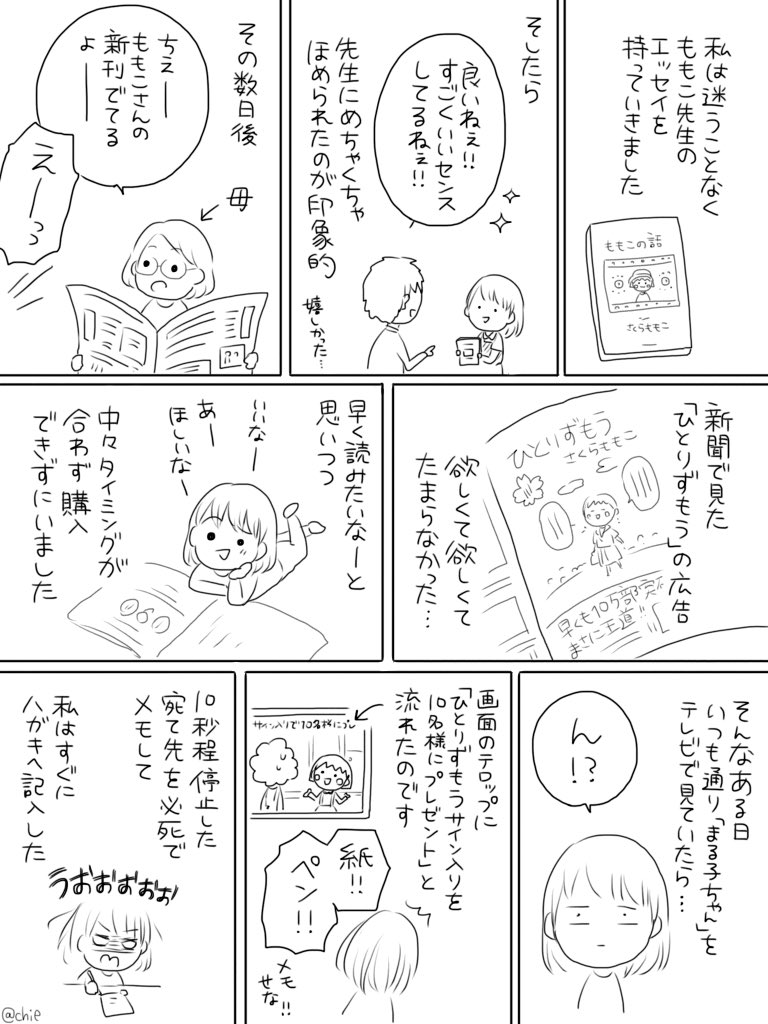 私は迷うことなく
ももこ先生の
エッセイを
持っていきました
ももこの話
さくらももこ
そしたら
良いねぇ!!
すごくいいセンス
してるねぇ!!
先生にめちゃくちゃ
ほめられたのが印象的
嬉しかった…
その数日後
ちえー
ももこさんの
新刊でてる
よーー
えーっ
母
新聞で見た
「ひとりずもう」の広告
ひとりずもう
さくらももこ
早くも10万部突
まさに王道
欲しくて欲しくて
たまらなかった…
早く読みたいなーと
思いつつ
いいなー
あー
ほしいなー
中々タイミングが
合わず購入
できずにいました
そんなある日
いつも通り「まる子ちゃん」を
テレビで見ていたら…
ん!?
画面のテロップに
「ひとりずもうサイン入りを
10名様にプレゼント」と
流れたのです
サイン入りで10名様にプレ
紙!!
ペン!!
メモ
せな!!
10秒程停止した
宛て先を必死で
メモして
私はすぐに
ハガキへ記入した
うおおおおぉぉ
@chie